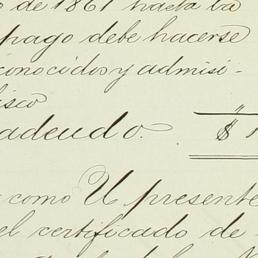 de 1861 hasta la
pago debe hacerse
conocidos y admisi-
fisco
adeudo. $
como U presente
el certificado de